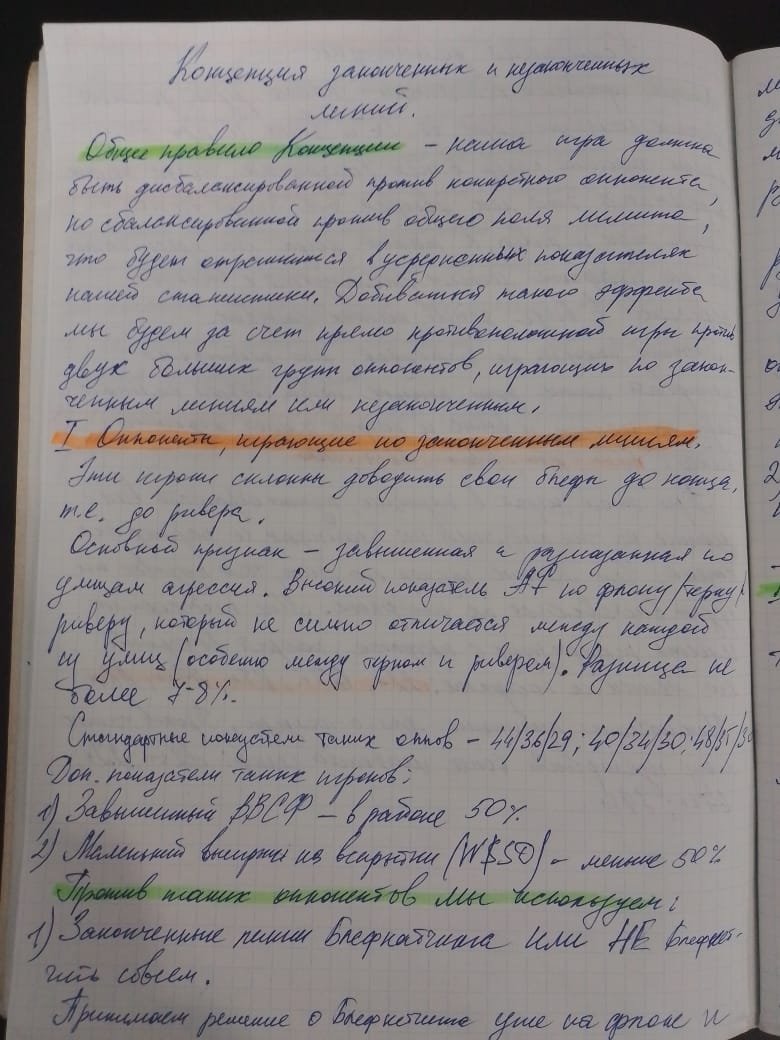 Концепция законченных и незаконченных
линий.
Общее правило Концепции – наша игра должна
быть дисбалансированной против конкретного оппонента,
но сбалансированной против общего поля лимита,
что будет отражаться в усредненных показателях
нашей статистики. Добиваться такого эффекта
мы будем за счет прямо противоположной игры против
двух больших групп оппонентов, играющих по закон-
ченным линиям или незаконченным.
I Оппоненты, играющие по законченным линиям.
Эти игроки склонны доводить свои блефы до конца,
т.е. до ривера.
Основной признак – завышенная и размазанная по
улицам агрессия. Высокий показатель AF по флопу/терну/
риверу, который не сильно отличается между каждой
из улиц (особено между терном и ривером). Разница не
более 7-8%.
Стандартные показатели таких оппов – 44/36/29; 40/34/30; 48/35/30
Доп. показатели таких игроков:
1) Завышенный ВВСФ – в районе 50%
2) Маленький выигрыш на вскрытии (W$SD) – меньше 50%
Против таких оппонентов мы используем:
1) Законченные линии Блефкатчинга или НЕ Блефкет-
чить совсем.
Принимаем решение о Блефкетчинге уже на флопе и